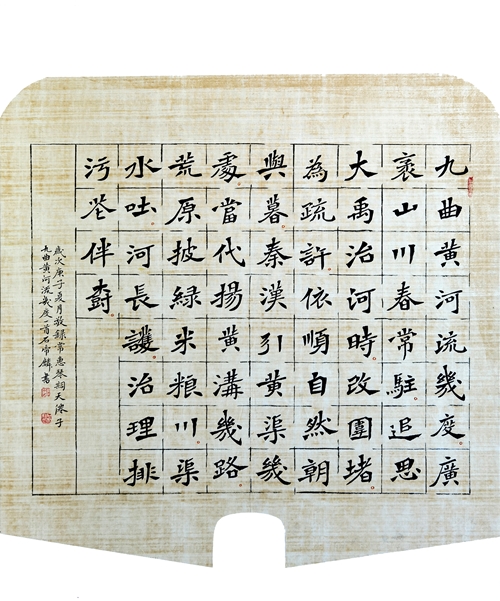 九曲黃河流幾度廣
袤山川春常駐追思
大禹治河時改圍堵
為疏許依順自然朝
與暮秦漢引黃渠幾
處當代揚黃溝幾路
荒原披綠米粮川渠
水吐河長護治理排
污花伴樹
歲次庚子夏月敬録常惠琴詞天子
九曲黃河流幾度一首石常麟書